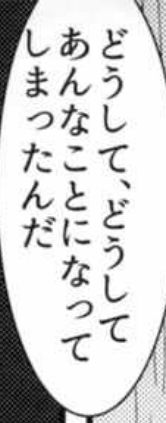 どうして、どうして
あんなことになって
しまったんだ